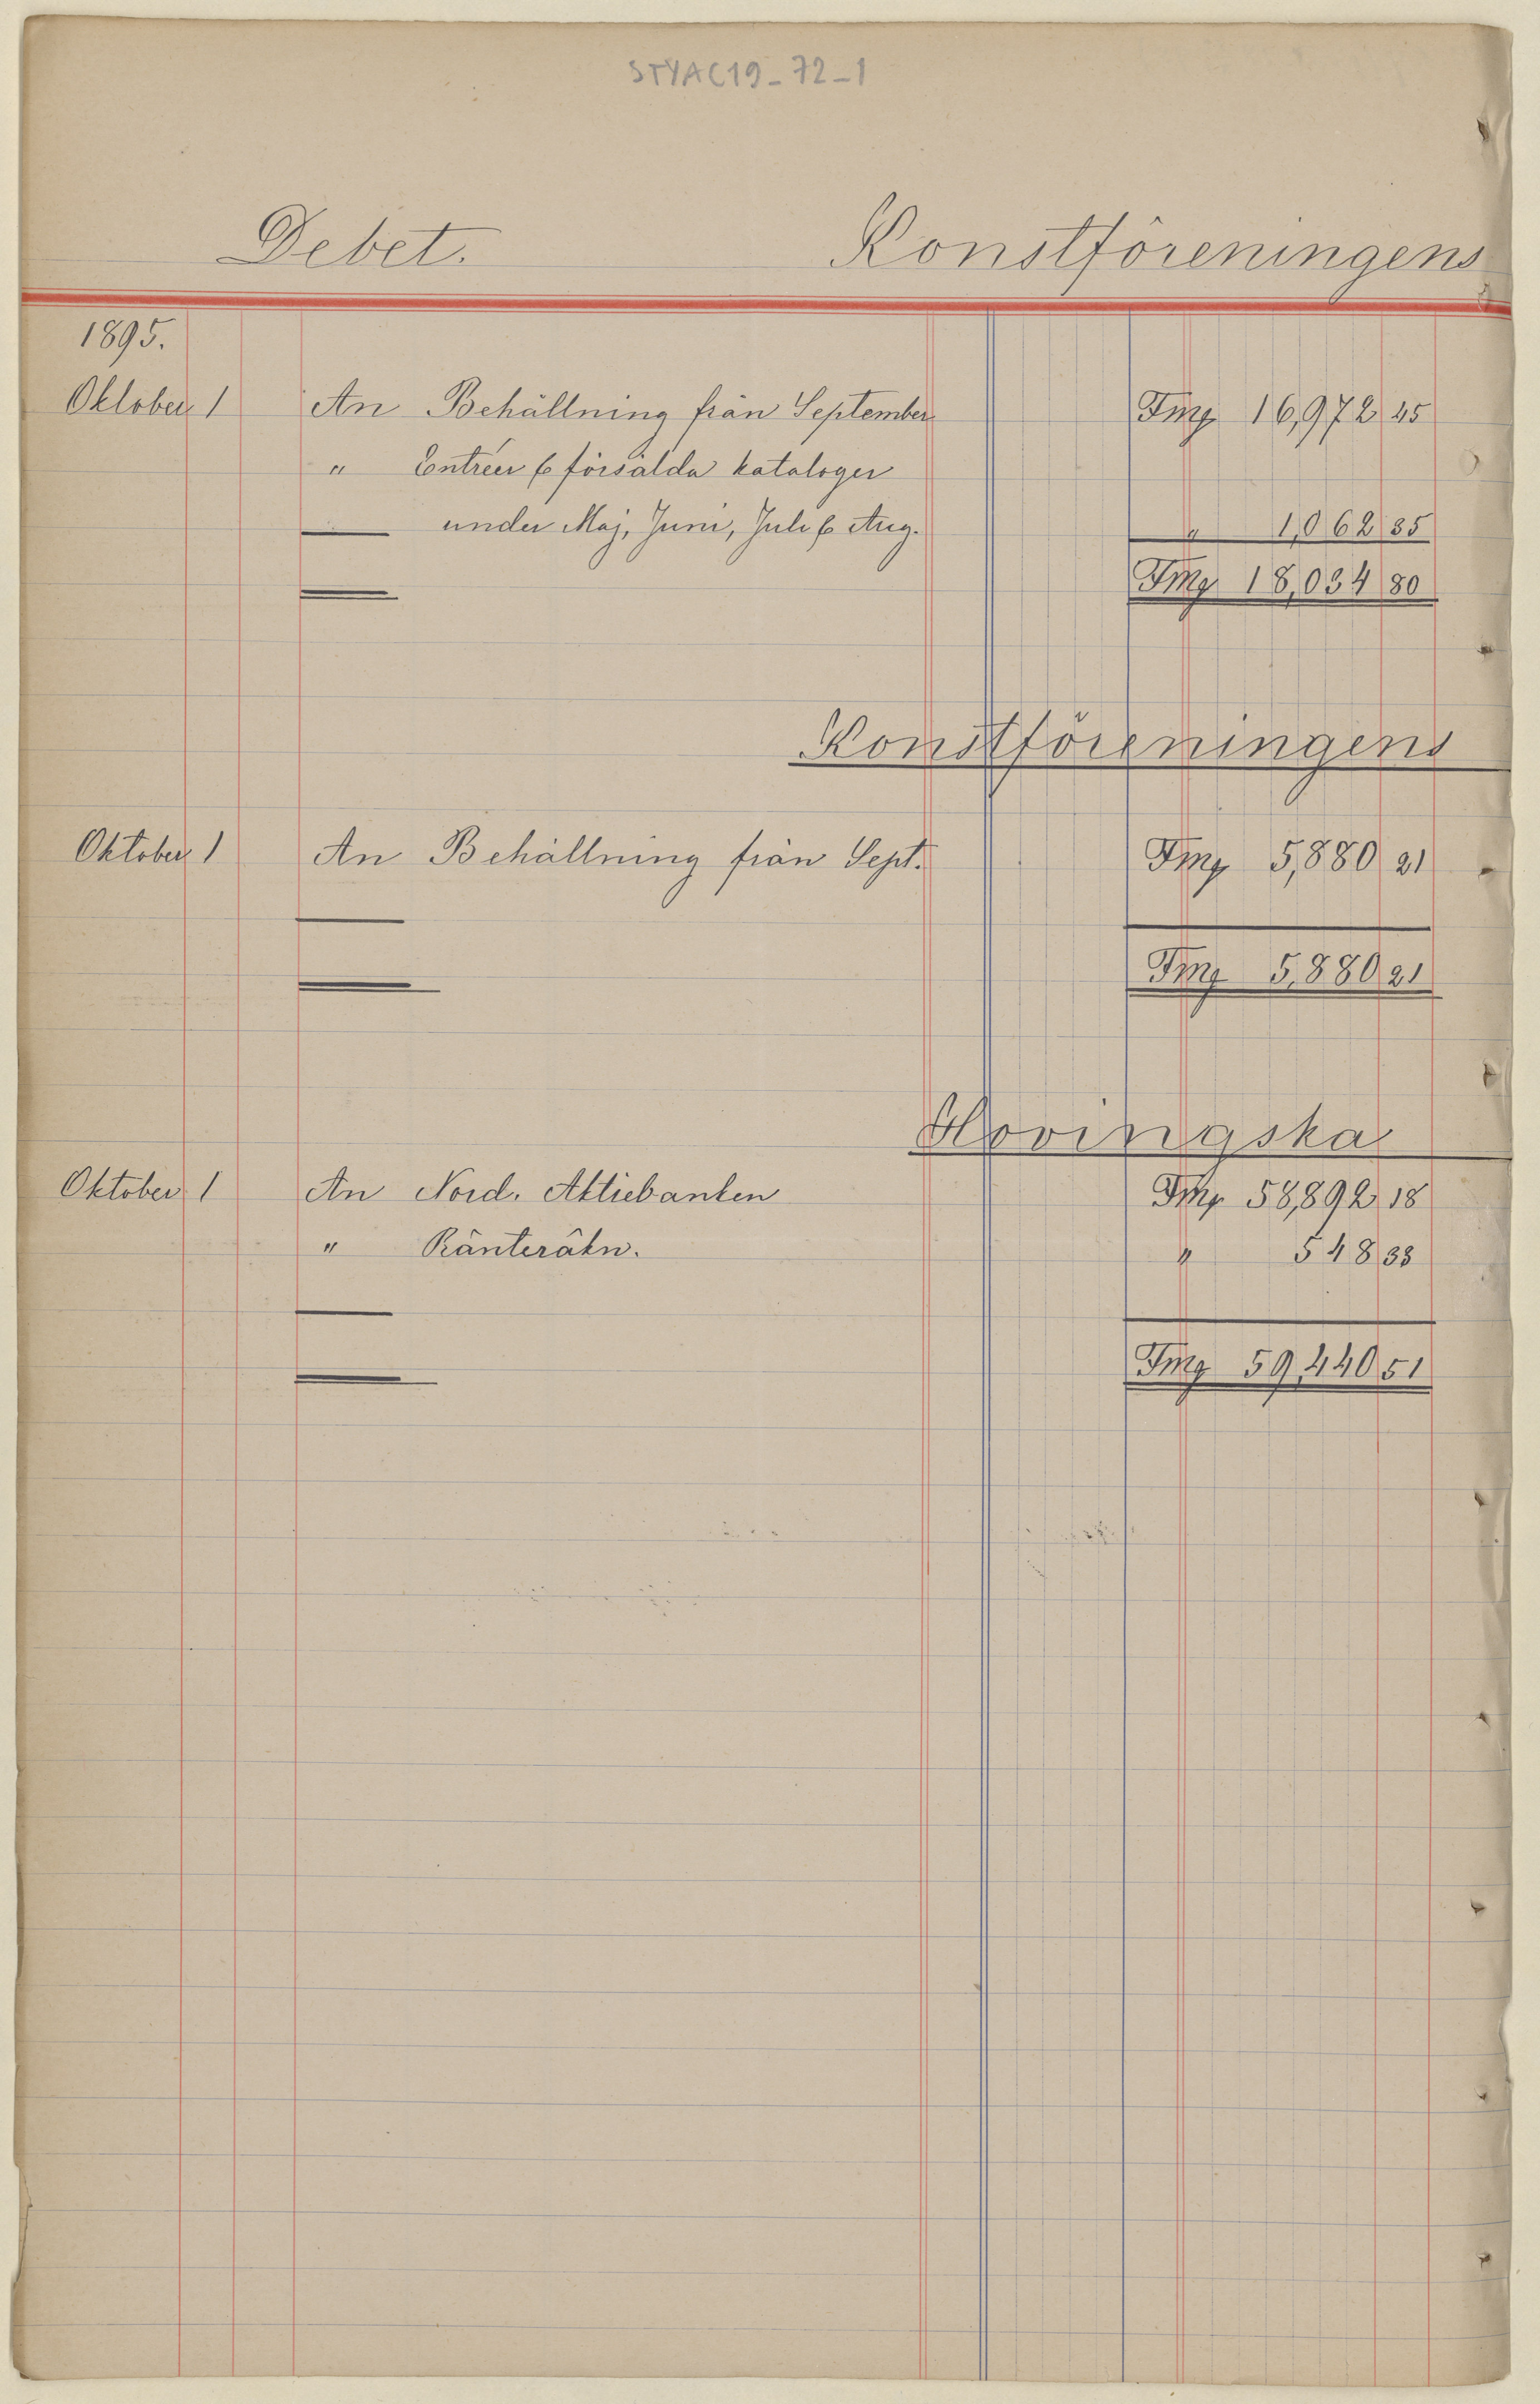 STYAC19_72_1
Debet. Konstföreningens
1895.
Oktober 1 An Behållning från September Fmg 16,972 45
" Entréer & försålda kataloger
under Maj, Juni, Juli & Aug. " 1,062 35
Fmg 18,034 80
Konstföreningens
Oktober 1 An Behållning från Sept. Fmg 5,880 21
Fmg 5,880 21
Hovingska
Oktober 1 An Nord. Aktiebanken Fmg 58,892 18
" Ränteräkn. " 548 33
Fmg 59,440 51